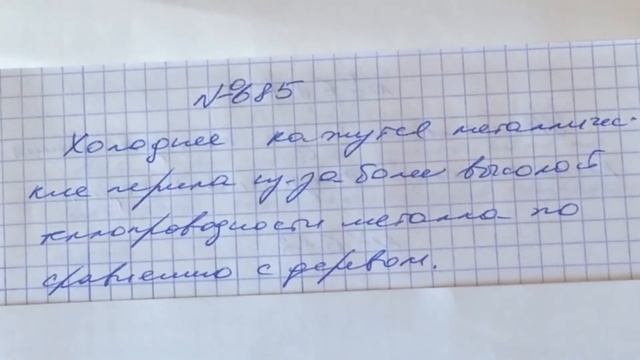 №685
Холоднее кажутся металличес-
кие перила из-за более высокой
теплопроводности металла по
сравнению с деревом.